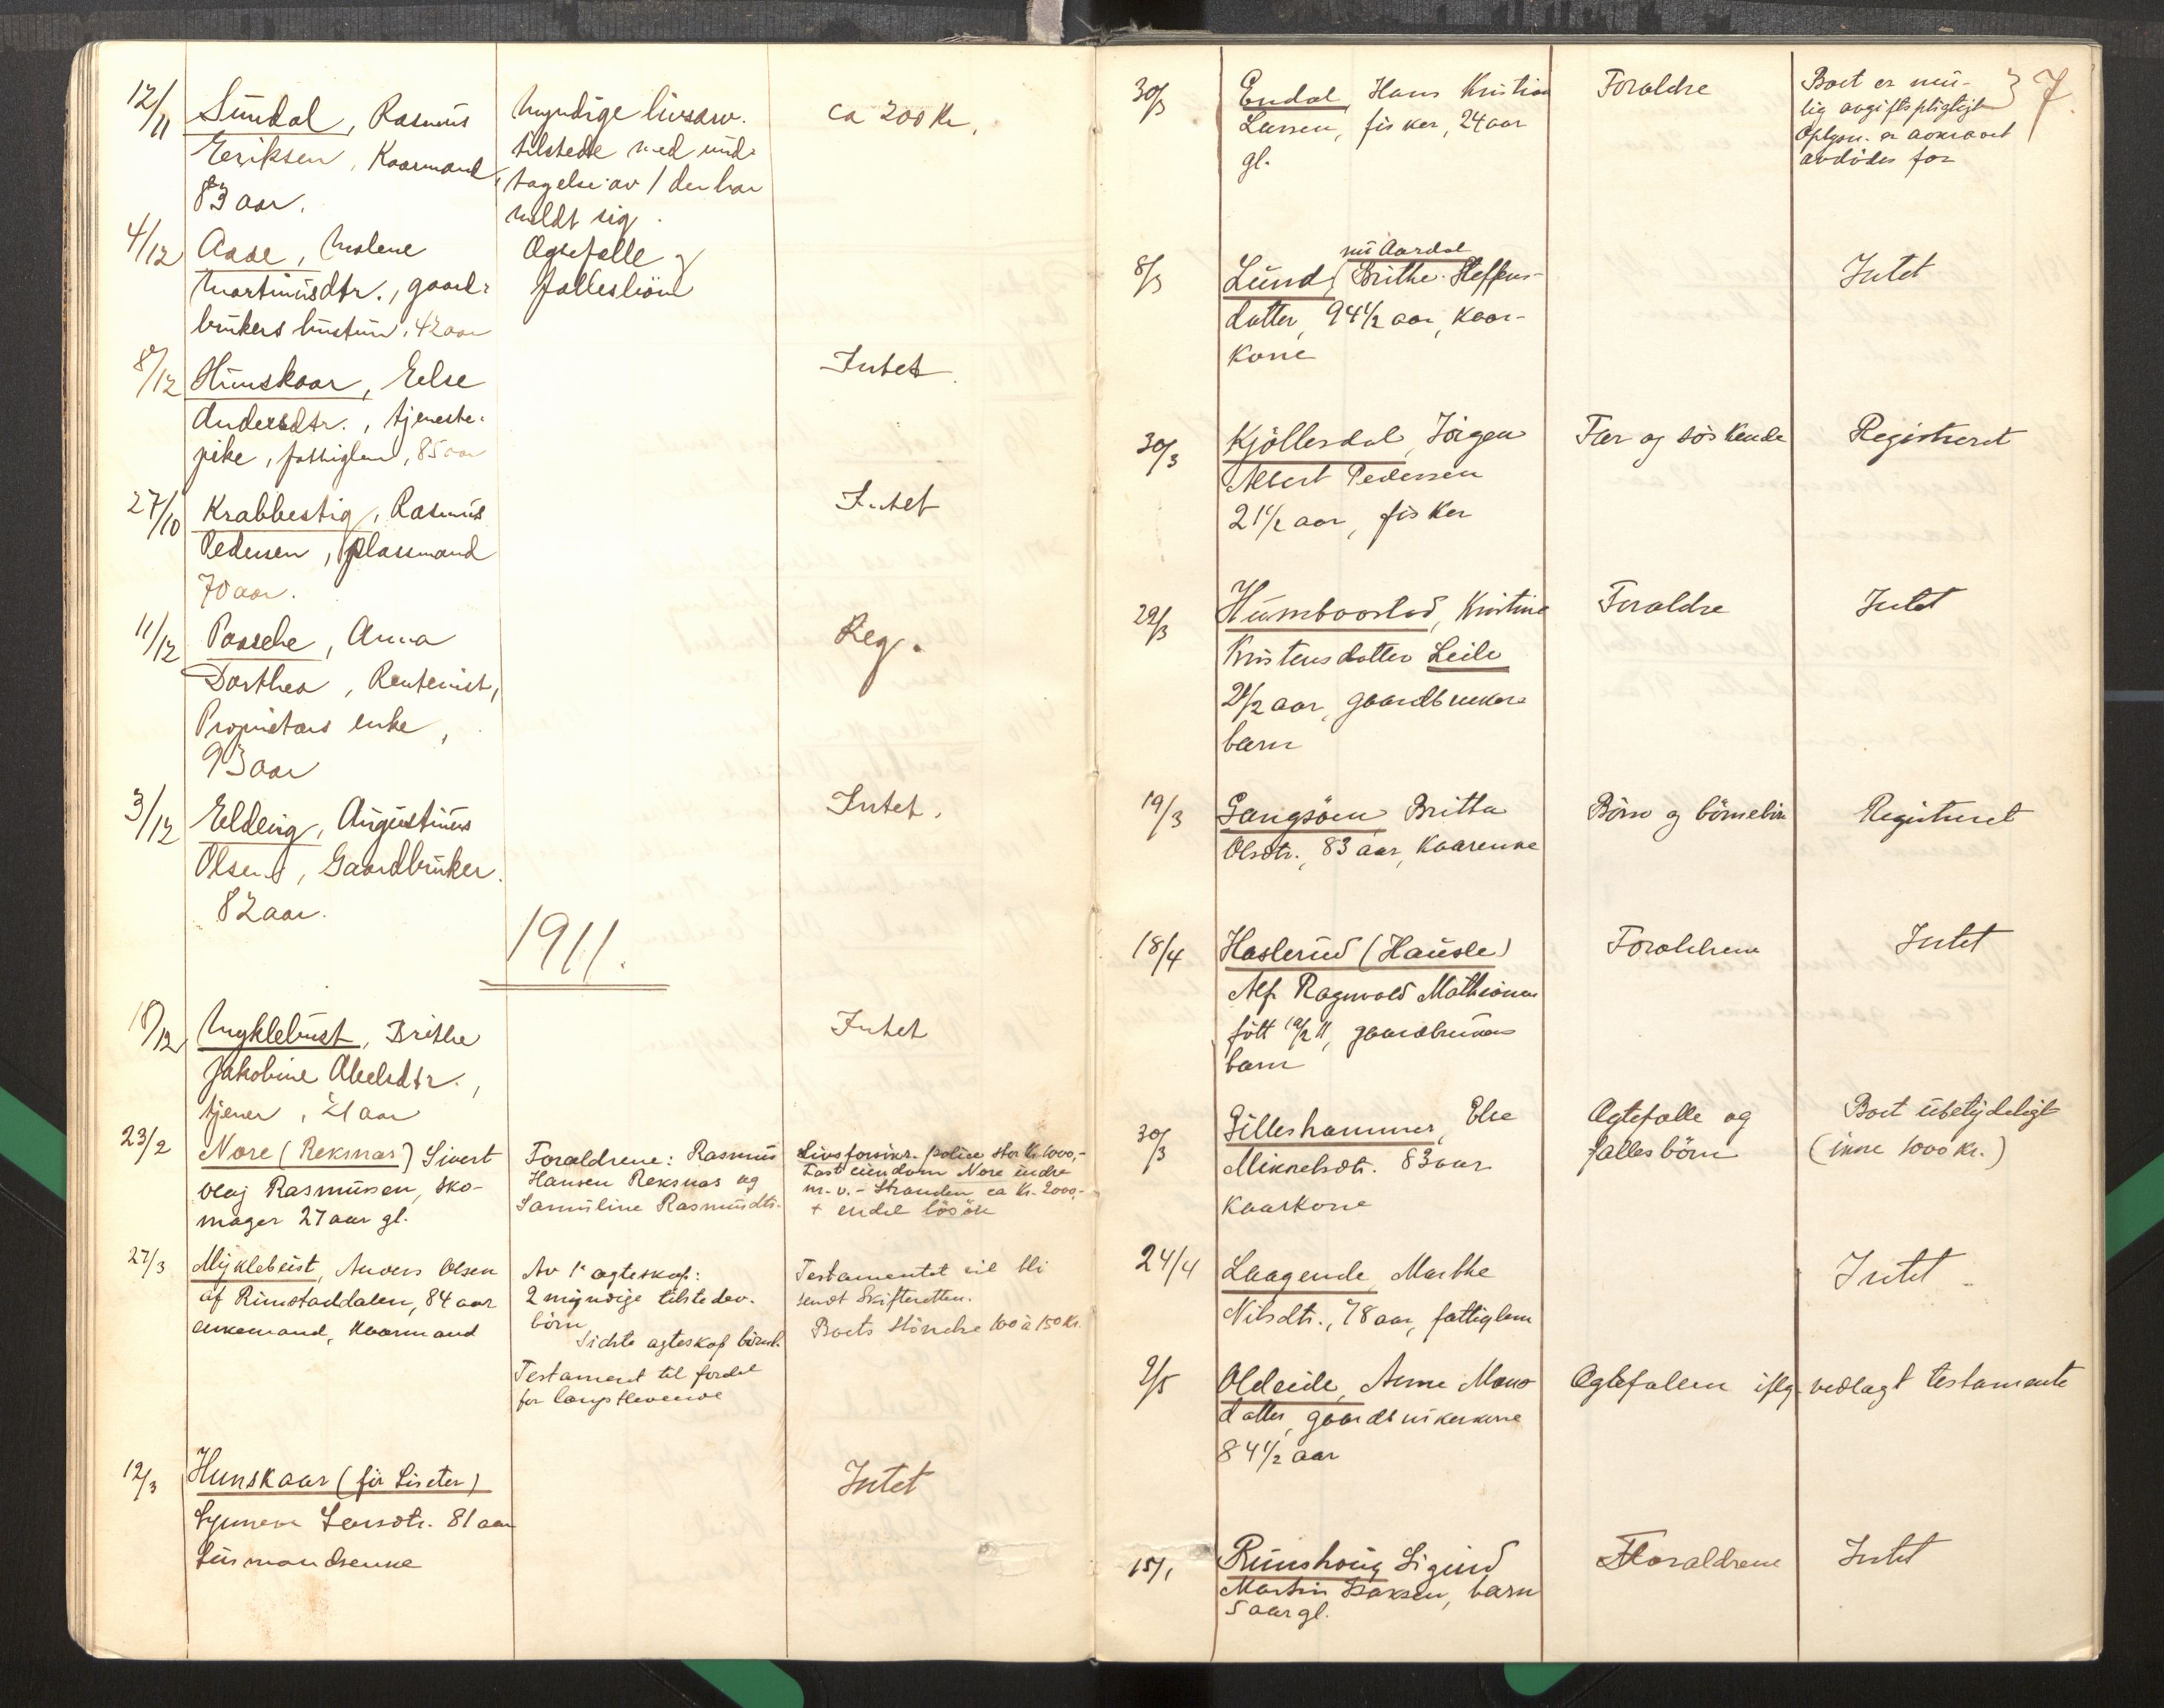 12/11 Sundal, Rasmus Myndige livsarv. ca 200 Kr.
Eriksen, Kaarmand, tilstede med und-
83 aar. tagelse av 1 der har
meldt sig.
4/12 Aase, Malene Ægtefælle og
Martinusdtr., gaard- fællesbörn
brukers hustru, 42 aar
8/12 Hunskaar, Else Intet
Andersdtr., tjeneste-
pike, fattiglem, 85 aar
27/10 Krabbestig, Rasmus Intet
Pedersen, plassmand
70 aar.
11/12 Paasche, Anna Reg.
Dorthea, Rentenist,
Proprietærs enke,
93 aar
3/12 Eldeirg, Augustinus Intet.
Olsen, Gaardbruker.
82 aar.
1911.
18/12 Myklebust, Brithe Intet
Jakobine Abelsdtr.,
tjener, 21 aar
23/2 Nore (Reksnæs) Sivert Forældrene: Rasmus Livsforsikr. police stor Kr 1000,-
Olaj Rasmussen, sko- Hansen Reksnæs og Fast eiendom Nore indre
mager 27 aar gl. Samuline Rasmusdtr. m. v. - Stranden ca Kr. 2000,-
+ endel lösöre
27/3 Myklebust, Anders Olsen Av 1ste ægteskap: Testamentet vil bli
af Rimstaddalen, 84 aar 2 myndige tilstedev. sendt Skifteretten.
enkemand, Kaarmand börn Boets Störrelse 100 à 150 Kr.
Sidste ægteskap börnl.
Testament til fordel
for længstlevende
12/3 Hunskaar (för Liseter) Intet
Synneva Larsdtr. 81 aar
Husmandsenke
30/3 Endal, Hans Kristian Forældre Boet er mu- } 7.
Larsen, fisker, 24 aar lig avgiftspligtigt
gl. Oplysn. er avkrævet
avdödes far
nu Aardal
8/3 Lund, Brithe Steffens- Intet
datter, 94 1/2 aar, Kaar-
kone
30/3 Kjöllesdal, Jörgen Far og söskende Registreret
Albert Pedersen
21 1/2 aar, fisker
22/3 Humborstad, Kristine Forældre Intet
Kristensdatter Leile
2 1/2 aar, gaardbrukers
barn
19/3 Gangsöen Britta Börn og börnebörn Registreret
Olsdtr., 83 aar, Kaarenke
18/4 Haslerud (Hausle) Forældrene Intet
Alf Ragnvald Mathisen
fött 19/2 11, gaardbrukers
barn
30/3 Gilleshammer, Else Ægtefælle og Boet ubetydeligt
Mikkelsdtr. 83 aar fællesbörn (ikke 1000 Kr.)
Kaarkone
24/4 Laagende, Marthe Intet
Nilsdtr., 78 aar, fattiglem
2/5 Oldeide, Anne Mons- Ægtefællen iflg. vedlagt testamente
datter, gaardbrukerkone
84 1/2 aar
15/1 Rimshoug Sigurd Forældrene Intet
Martin Isaksen, barn
5 aar gl.